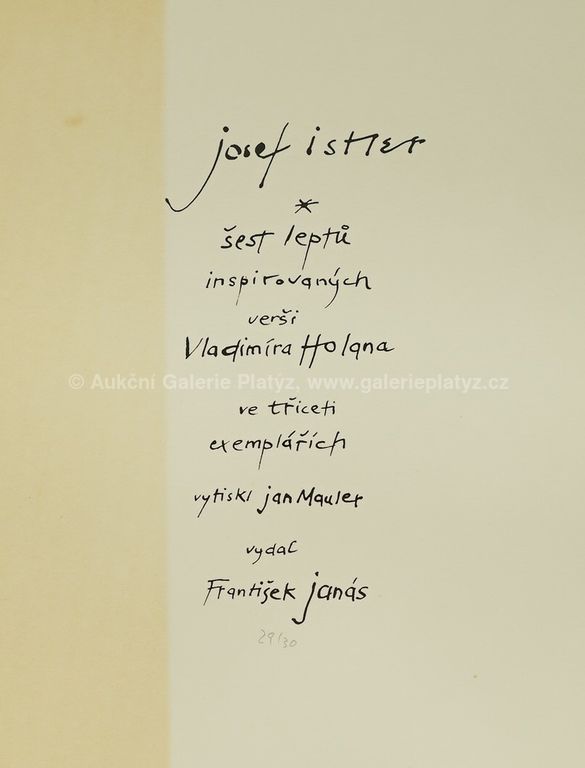 josef istler
*
šest leptů
inspirovaných
verši
Vladimíra Holana
© Aukční Galerie Platýz, www.galerieplatyz.cz
ve třiceti
exemplářích
vytiskl jan Mauler
vydal
František janás
29/30